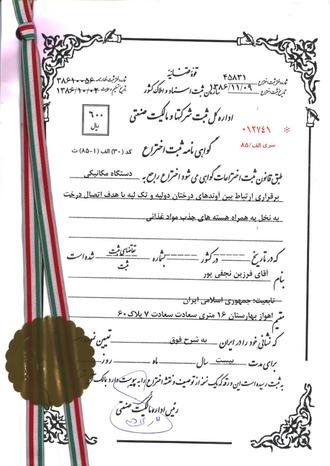 قوه قضائیه
سازمان ثبت اسناد و املاک کشور
۴۵۸۳۱
۱۳۸۶/۱۱/۰۹
۳۸۶۱۰۰۵۶
۱۳۸۶/۱۰/۰۲
۶۰۰
ریال
اداره کل ثبت شرکتها و مالکیت صنعتی
۰۱۲۷۴۱ *
سری الف/۸۵
گواهی نامه ثبت اختراع
کد (۳۰) الف (۱-۸۵) ث
طبق قانون ثبت اختراعات گواهی می شود اختراع راجع به دستگاه مکانیکی
برقراری ارتباط بین آوندهای درختان دولپه و تک لپه با هدف اتصال درخت
به نخل به همراه هسته های جذب مواد غذائی
که در تاریخ ----- در کشور ----- بشماره ----- تقاضای ثبت شده است
ثبت
بنام آقای فرزین نجفی پور
تابعیت: جمهوری اسلامی ایران
مقیم اهواز بهارستان ۱۶ متری سعادت سعادت ۷ پلاک ۶۰
که نشانی خود را در ایران به شرح فوق تعیین نموده
برای مدت بیست سال ماه روز
به ثبت رسیده است این ورقه که یک نسخه از توصیف و نقشه اختراع را به پیوست دارد به مالک
رئیس اداره مالکیت صنعتی